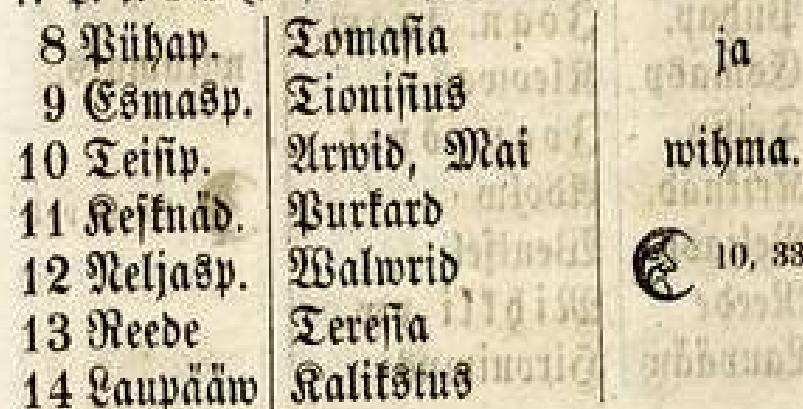 8 Pühap. Tomasia ja
9 Esmasp. Tionisius
10 Teisip. Arwid, Mai wihma.
11 Kesknäd. Purkard
12 Neljasp. Walwrid 10, 33
13 Reede Teresia
14 Laupääw Kalikstus